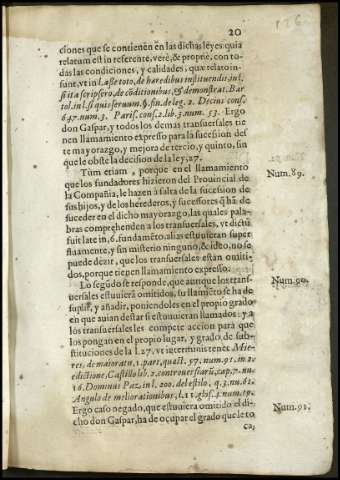 20
126
ciones que se contienen en las dichas leyes quia
relatum est in referente, verè, & proprie, con to-
das las condiciones, y calidades, quæ relato in-
sunt, vt in l. asse toto, de hæredibus instituendis, in l.
si ita scripsero, de cõditionibus, & demonstrat. Bar
tol. in l. si quis seruum, §. fin. de leg. 2. Decius cons.
637. num. 3. Paris. cons. 2. lib. 3. num. 53. Ergo
don Gaspar, y todos los demas transuersales tie
nen llamamiento expresso para la sucession des
te mayorazgo, y mejora de tercio, y quinto, sin
que le obste la decision de la ley, 27.
Tùm etiam, porque en el llamamiento
que los fundadores hizieron del Prouincial de
la Compañia, le hazen à falta de la sucesion de
sus hijos, y de los herederos, y sucessores q̃ hã de
suceder en el dicho mayorazgo, las quales pala-
bras comprehenden a los transuersales, vt dictũ
fuit late in, 6. fundamẽto, alias estuuieran super
fluamente, y sin misterio ninguno, & ideo, no se
puede dezir, que los transuersales estàn omiti-
dos, porque tienen llamamiento expresso.
Num. 89.
Lo segũdo se responde, que aunque los trans-
uersales estuuierã omitidos, su llamẽto se ha de
suplir, y añadir, poniendoles en el propio grado
en que auian de estar si estuuieran llamados: y a
los transuersales les compete accion para que
los pongan en el propio lugar, y grado, de subs-
tituciones de la l. 27. vt in terminis tenet Mie-
res, de maioratu, 1. part. quæst. 57. num. 91. in 2.
edictione, Castillo lib. 2. controuersiarũ, cap. 7. nu.
16. Dominus Paz, in l. 200. del estilo, q. 3. nu. 62.
Angulo de meliorationibus, l. 11. glos. 4. num. 19.
Num. 90.
Ergo caso negado, que estuuiera omitido el di-
cho don Gaspar, ha de ocupar el grado que le to
Num. 91.
ca,